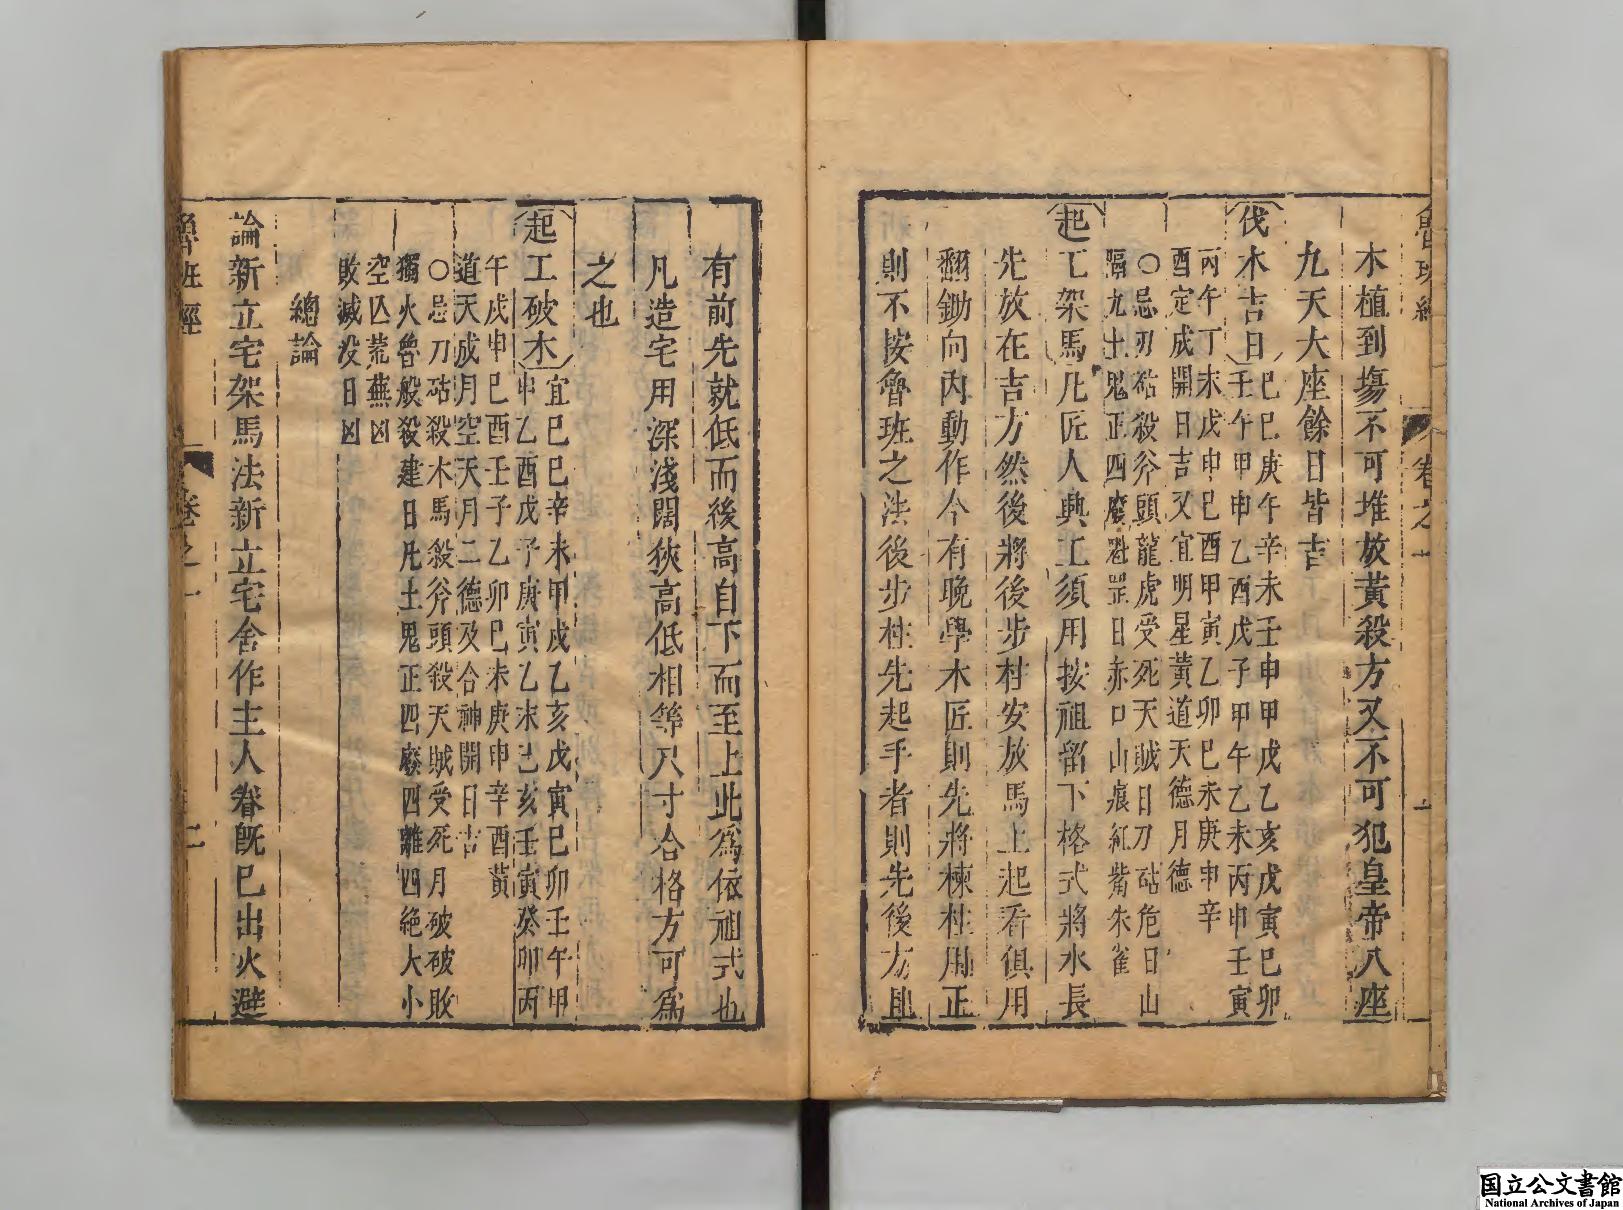 魯班經 卷之一
木植到塲不可堆放黃殺方又不可犯皇帝八座
九天大座餘日皆吉
伐木吉日
己巳庚午辛未壬申甲戌乙亥戊寅己卯
壬午甲申乙酉戊子甲午乙未丙申壬寅
丙午丁未戊申己酉甲寅乙卯己未庚申辛
酉定成開日吉又宜明星黃道天德月德
○忌刃砧殺斧頭龍虎受死天賊日刀砧危日山
隔九土鬼正四廢魁罡日赤口山痕紅觜朱雀
起工架馬凡匠人興工須用按祖留下格式將水長
先放在吉方然後將後步柱安放馬上起看俱用
翻鋤向內動作今有晚學木匠則先將棟柱用正
則不按魯班之法後步柱先起手者則先後方且
有前先就低而後高自下而至上此爲依祖式也
凡造宅用深淺闊狹高低相等尺寸合格方可爲
之也
起工破木
宜己巳辛未甲戌乙亥戊寅己卯壬午甲
申乙酉戊子庚寅乙未己亥壬寅癸卯丙
午戊申己酉壬子乙卯己未庚申辛酉黃
道天成月空天月二德及合神開日吉
○忌刀砧殺木馬殺斧頭殺天賊受死月破破敗
獨火魯般殺建日九土鬼正四廢四離四絶大小
空亾荒蕪凶
敗滅没日凶
總論
論新立宅架馬法新立宅舍作主人眷旣已出火避
魯班經 卷之一 二
国立公文書館
National Archives of Japan